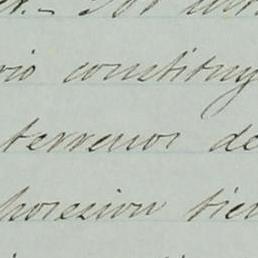 Por
rio constituy
terrenos de
posesion tien